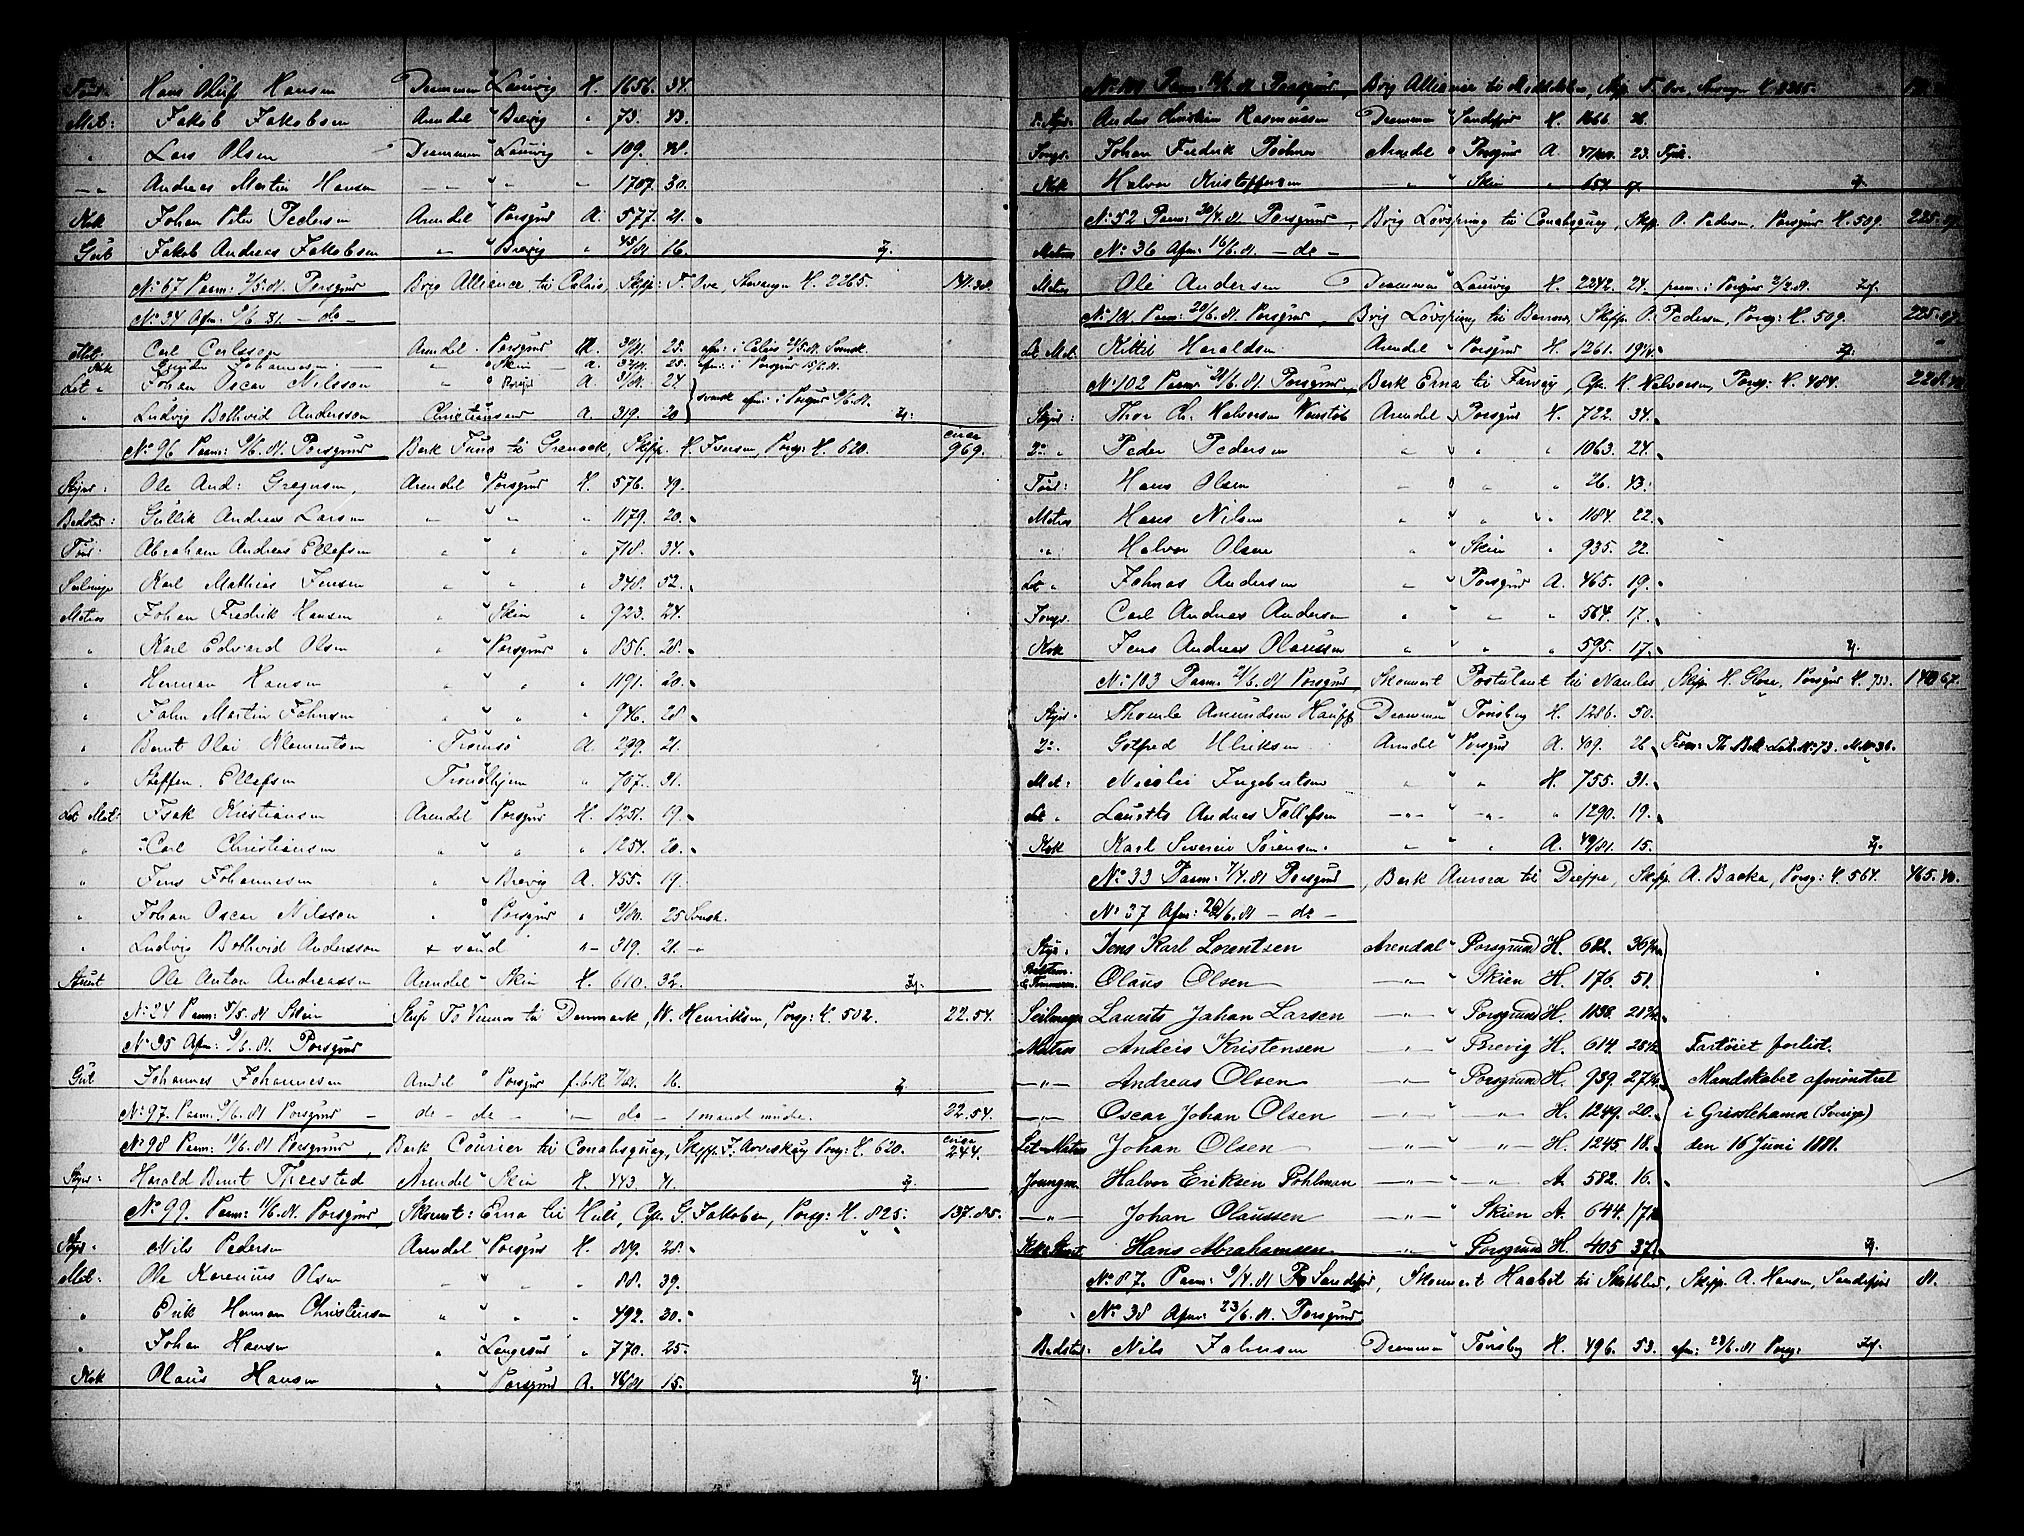 Tøm: Hans Oluf Hansen Drammen " Laurvig H. 1656. 34.
Mat: Jakob Jakobsen Arendal " Brevig " 73. 43.
" Lars Olsen Drammen " Laurvig " 109. 48.
— " Andreas Martin Hansen — " — " " " 1707. 30.
Kok Johan Peter Pedersen Arendal " Porsgrund A. 577. 21.
Gut Jakob Andreas Jakobsen " " Brevig " 45/81. 16.
No 67 Paam: 7/5.81. Porsgrund Brig Alliance til Calais, Skipp: T. Ove, Stavanger H. 2265. 191.38.
No 34 Afm: 9/6.81. — do —
Mat: Carl Carlsson Arendal. Porsgrund A. 25. afm: i Calais 21/5.81. Svensk.
Kok Johannesen " Skien " a. 25. afm: i Porsgrund 15/6.81.
Let " Johan Oscar Nilsson " " Porsgrd A. 9/80. 24
" Ludvig Bothvid Andersson Christiansand A. 319. 20 svensk afm: i Porsgrund 9/6.81.
No 96 Paam: 9/6.81. Porsgrund Bark Juno til Greenock, Skipp. H. Iversen, Porsg: H. 620. circa 969.
Styrm: Ole And: Gregersen, Arendal " Porsgrund H. 576. 49.
Bedstm: Gullik Andreas Larsen " " " " 1179. 20.
Tøm: Abraham Andreas Ellefsen " " " " 718. 34.
Seilmager Karl Mathias Jensen " " " " 348. 52.
Matros Johan Fredrik Hansen " " Skien " 923. 24.
" Karl Edvard Olsen " " Porsgrund " 856. 28.
" Herman Hansen " " " " 1191. 20.
" John Martin Johnsen " " " " 946. 28.
" Bernt Olai Klementsen Tromsø A. 299. 21.
" Steffen Ellefsen Trondhjem " 707. 31.
Let Mat: Isak Kristiansen Arendal " Porsgrund H. 1251. 19.
" Carl Christiansen " " " " 1254. 20.
" Jens Johannesen " " Brevig A. 455. 19.
" Johan Oscar Nilsson " " Porsgrund " 9/80. 25 Svensk.
" Ludvig Bothvid Andersson + sand " — 319. 21. — "
Stuert Ole Anton Andreassen Arendal " Skien H. 610. 32.
No 24 Paam: 3/5.81 Skien Slup To Venner til Danmark, W. Henriksen, Porsg: H. 502. 22.54.
No 35 Afm: 9/6.81. Porsgrund
Gut Johannes Johannesen Arendal " Porsgrund f.b.R 16.
No 97. Paam: 9/6.81 Porsgrund — do — do — " — do — 1 mand mindre. 22.54.
No 98 Paam: 10/6.81 Porsgrund, Bark Courier til Conahsquay, Skipp. J. Porsg: H. 620. circa 244.
Styrm: Harald Bernt Arendal " Skien H. 443. 41.
No 99. Paam: 11/6.81. Porsgrund Skonnert: Erna til Hull, Cpt. G. Jakobsen, Porsg: H. 825. 137.85.
Styrm. Nils Pedersen Arendal " Porsgrund H. 819. 28.
Mat: Ole Karenius Olsen " " " " 88. 39.
" Erik Herman Christensen " " " " 492. 30.
" Johan Hansen " " Langesund " 770. 25.
Kok Olaus Hansen " " Porsgrund A. 46/81. 15.
No 100 Paam: 16/6.81 Porsgrund, Brig Alliance til Skipp. T. Ove, Stavanger H. 2265.
2. Styr. Anders Kristian Rasmussen Drammen " Sandefjord H. 1666. 26.
Jongm. Johan Fredrik Arendal " Porsgrund A. 23. Tysk.
Kok Halvor Kristoffersen — " — " Skien " 654. 17.
No 52 Paam: 20/4.81 Porsgrund, Brig Løvspring til Conahsquay, Skipp. P. Pedersen, Porsgrund H. 509. 225.97.
Matros No 36 Afm: 16/6.81. — do —
Matros Ole Andersen Drammen " Laurvig H. 2242. 24. paam: i Porsgrund 2/2.81.
No 101 Paam: 20/6.81. Porsgrund, Brig Løvspring til Barrow, Skipp. P. Pedersen, Porsg: H. 509. 225.97.
Let Mat. Kittil Haraldsen Arendal " Porsgrund H. 1261. 19½.
No 102 Paam: 21/6.81 Porsgrund, Bark Erna til Cpt. H. Halvorsen, Porsg: H. 484. 228.
Styrm: Thor Ch. Halvorsen Arendal " Porsgrund H. 722. 34.
2. " Peder Pedersen " " " " 1063. 24.
Tøm: Hans Olsen " " " " 26. 43.
Matros Hans Nilsen " " " " 1184. 22.
" Halvor Olsen " " Skien " 935. 22.
Let " Johnas Andersen " " Porsgrund A. 465. 19.
Jongm. Carl Andreas Andersen " " " " 564. 17.
Kok Jens Andreas Olaussen " " " " 595. 17.
No 103 Paam: 21/6.81 Porsgrund Skonnert Postulant til Nantes, Skipp. H. Porsgrund H. 733. 140.67.
Styrm. Thomle Amundsen Drammen " Tønsberg H. 1286. 50.
2. Gotfred Ulriksen Arendal " Porsgrund A. 409. 26
Mat: Nicolai Ingebretsen " " " H. 755. 31.
Let " Laurits Andreas Tollefsen — " — " — " — " 1290. 19.
Kok Karl Severin Sørensen " " " A. 49/81. 15.
No 33 Paam: 7/4.81 Porsgrund, Bark Aurora til Dieppe, Skipp. A. Backa, Porsg: H. 564. 465.40.
No 37 Afm: 20/6.81 — do —
Styr: Jens Karl Lorentsen Arendal " Porsgrund H. 682. 36¼.
Bedstm. & Tømmerm. Olaus Olsen — " — " Skien H. 176. 51.
Seilmager Laurits Johan Larsen — " — " Porsgrund H. 1138. 21¾.
Matros Anders Kristensen — " — " Brevig H. 614. 28½. Fartøiet forlist.
— " — Andreas Olsen — " — " Porsgrund H. 939. 27¼. Mandskabet afmønstret
— " — Oscar Johan Olsen — " — " — " — H. 1249. 20. i Grisslehamn (Sverige)
Let Matros Johan Olsen — " — " — " — H. 1245. 18. den 16 Juni 1881.
Joungm. Halvor Eriksen Pohlman — " — " — " — A. 582. 16.
— " — Johan Olaussen — " — " Skien A. 644. 17½
Kok & Stuert Hans Abrahamsen — " — " Porsgrund H. 405. 37.
No 87. Paam: 9/4.81 Sandefjord, Skonnert Haabet til Skipp. A. Hansen, Sandefjord 81.
No 38 Afm: 23/6.81. Porsgrund
Bedstm: Nils Johnsen Drammen " Tønsberg H. 496. 53. afm: 23/6.81 Porsg: